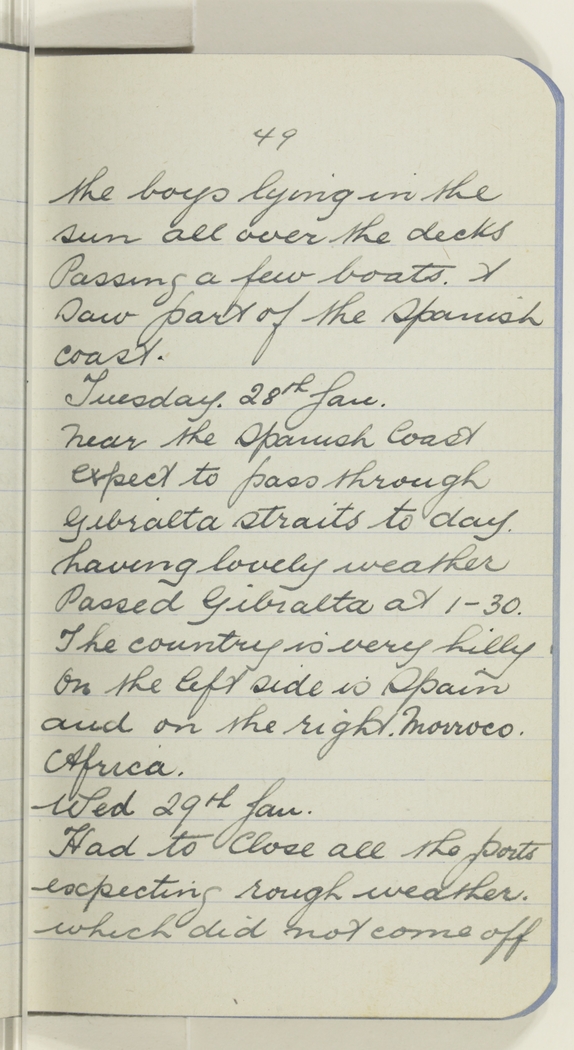 49
the boys lying in the
sun all over the decks
Passing a few boats. &
Saw part of the Spanish
coast.
Tuesday. 28th Jan.
Near the Spanish Coast
expect to pass through
Gibralta straits to day.
having lovely weather
Passed Gibralta at 1-30.
The country is very hilly.
On the left side is Spain
and on the right. Morroco.
Africa.
Wed 29th Jan.
Had to Close all the ports
expecting rough weather.
which did not come off